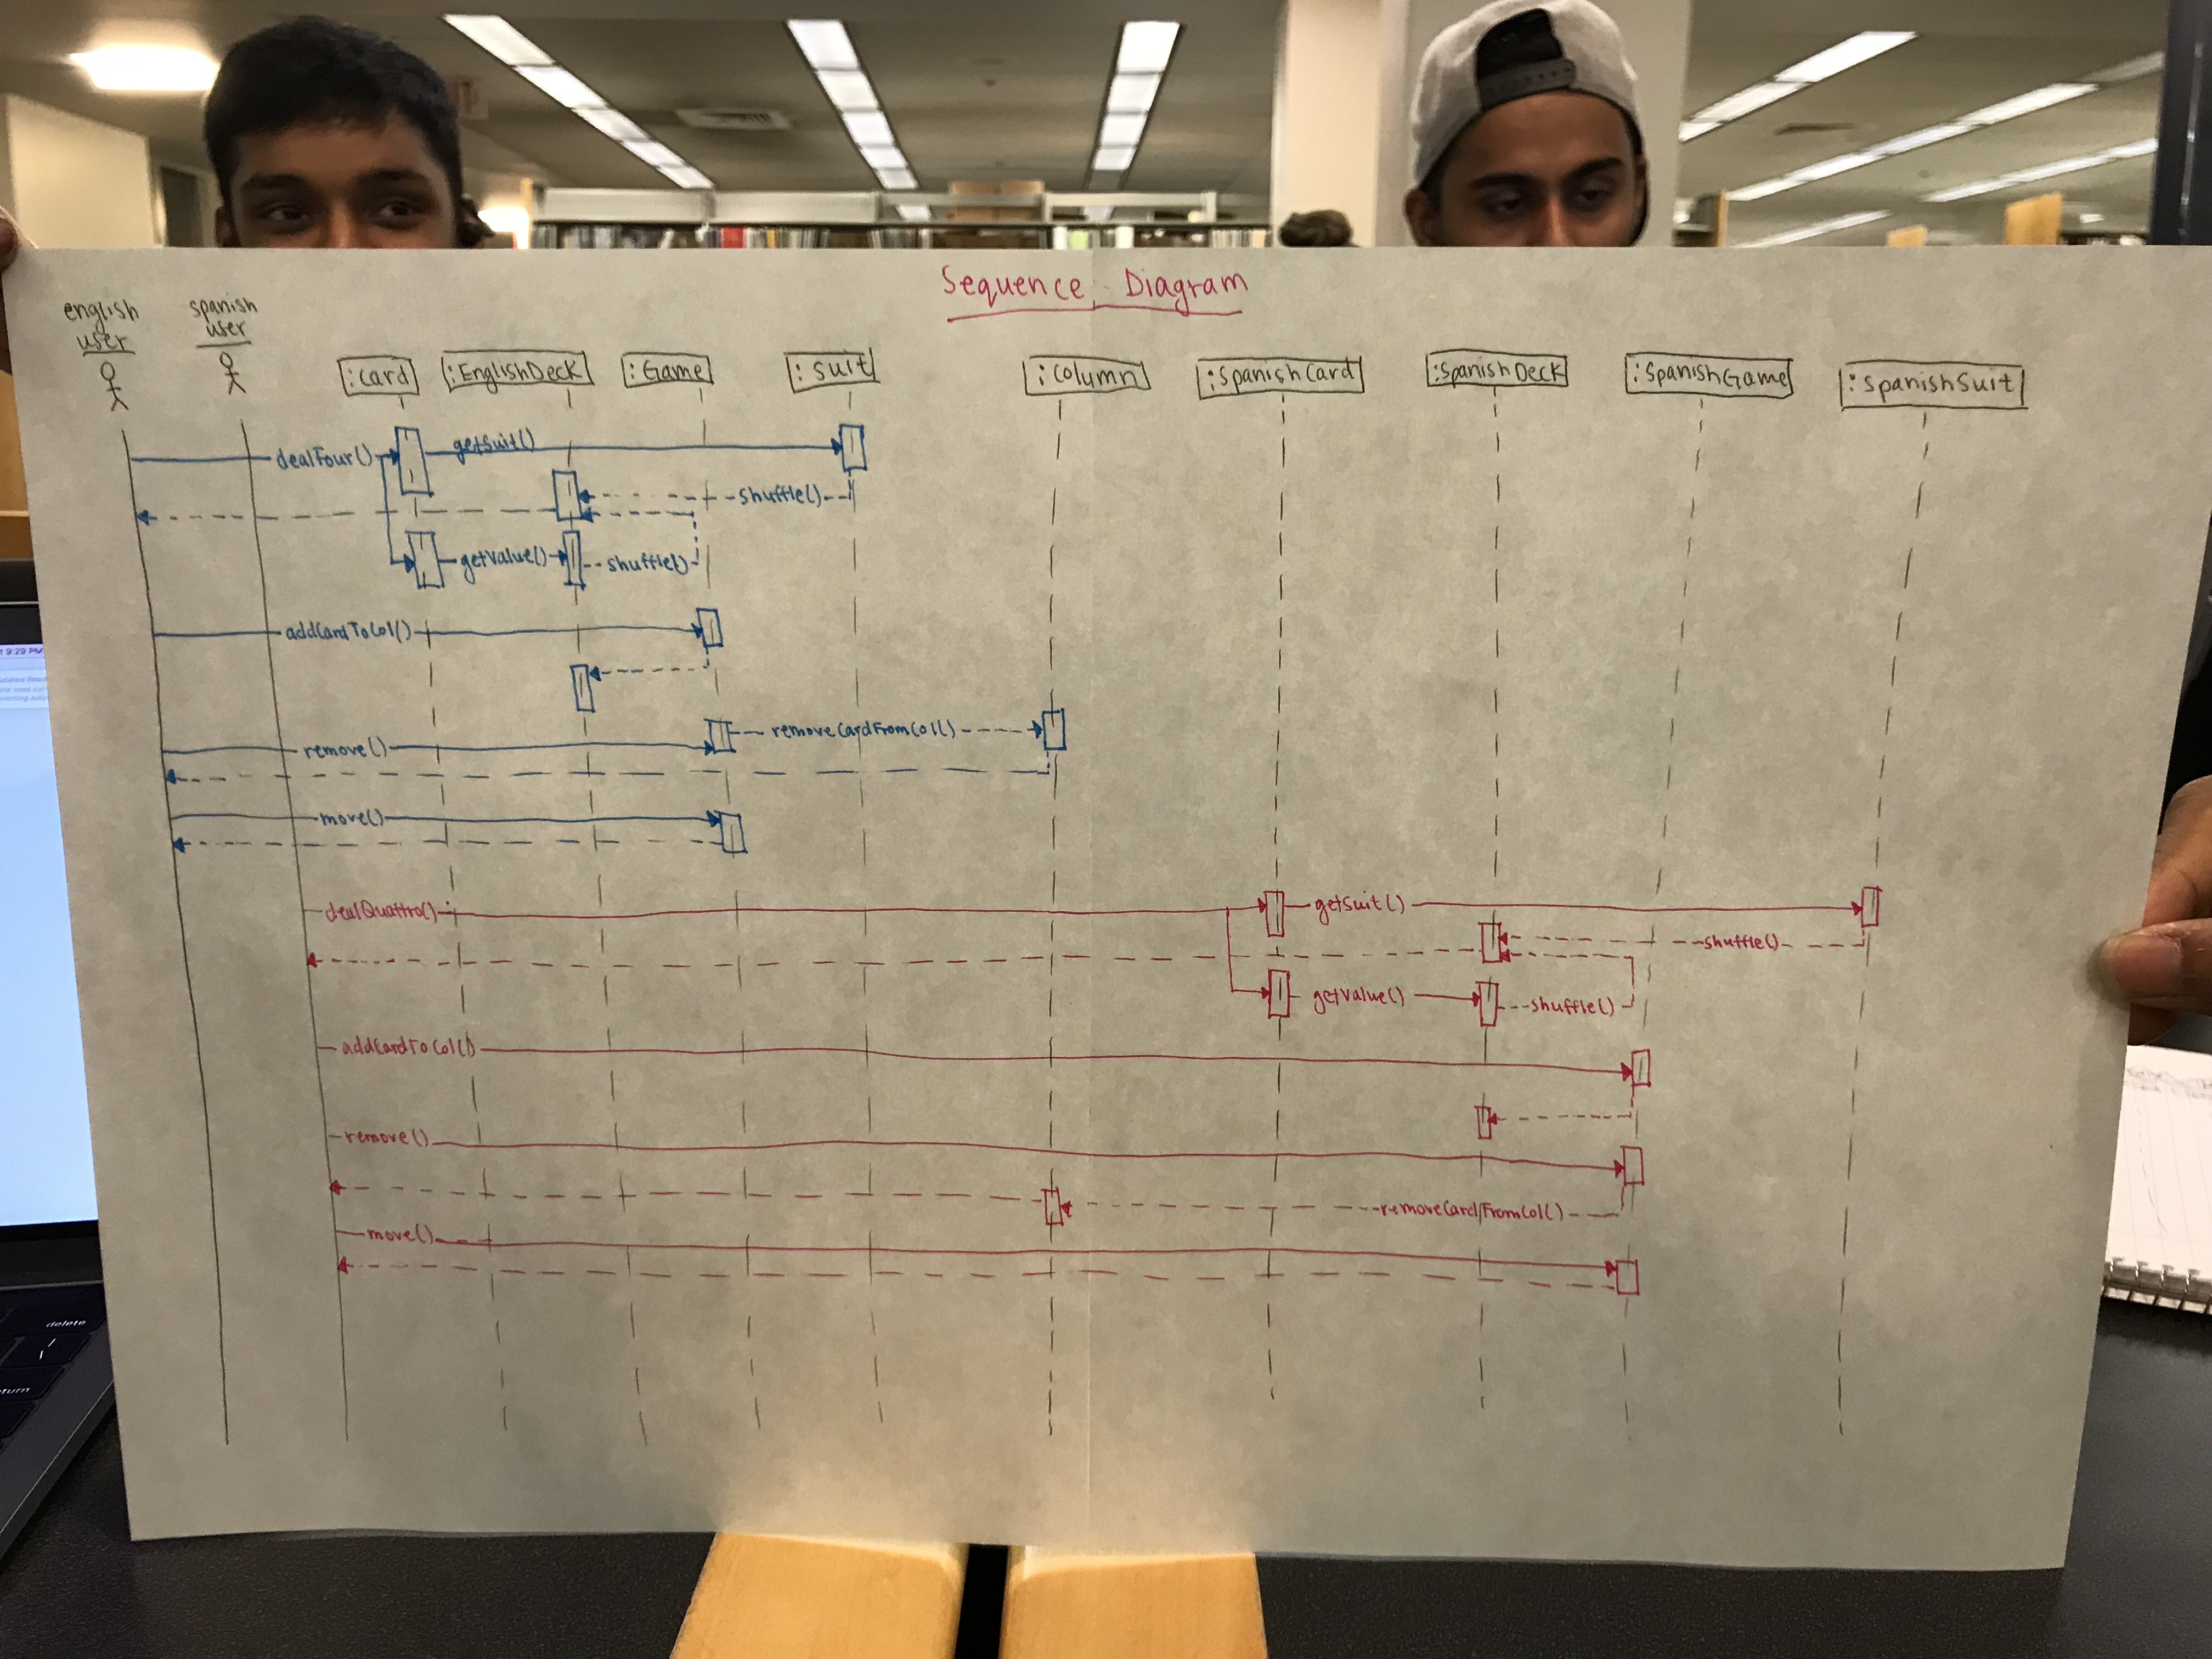 Sequence Diagram
english
user
spanish
user
:Card
:EnglishDeck
:Game
:Suit
:Column
:SpanishCard
:SpanishDeck
:SpanishGame
:SpanishSuit
dealFour()
getSuit()
shuffle()
getValue()
shuffle()
addCardToCol()
removeCardFromCol()
remove()
move()
dealQuattro()
getSuit()
shuffle()
getValue()
shuffle()
addCardToCol()
remove()
removeCardFromCol()
move()
9:29 PM
delete